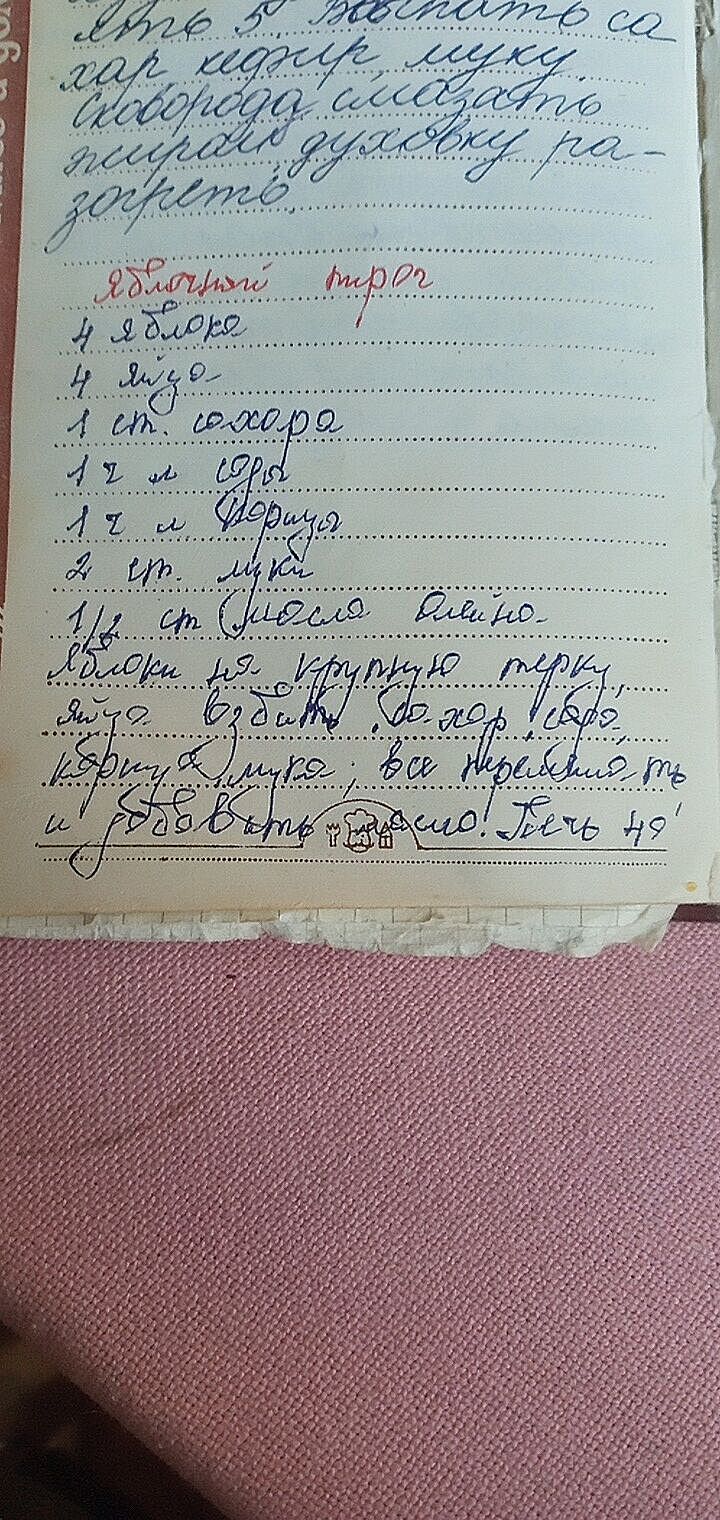 ять 5. Всыпать са
хар кефир муку.
Сковорода смазать
жиром, духовку ра-
зогреть.
Яблочный пирог
4 яблока
4 яйца
1 ст. сахара
1 ч л соды
1 ч л корицы
2 ст. муки
1/2 ст масла олейно.
Яблоки на крупную терку,
яйца взбить, сахар, сода,
корица, мука, все перемешать
и добавить масло. Печь 40'